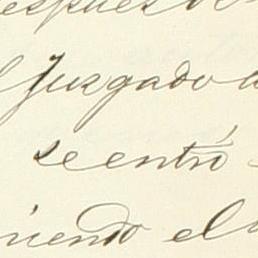 espues de
Juzgado a
se entró
niendo el